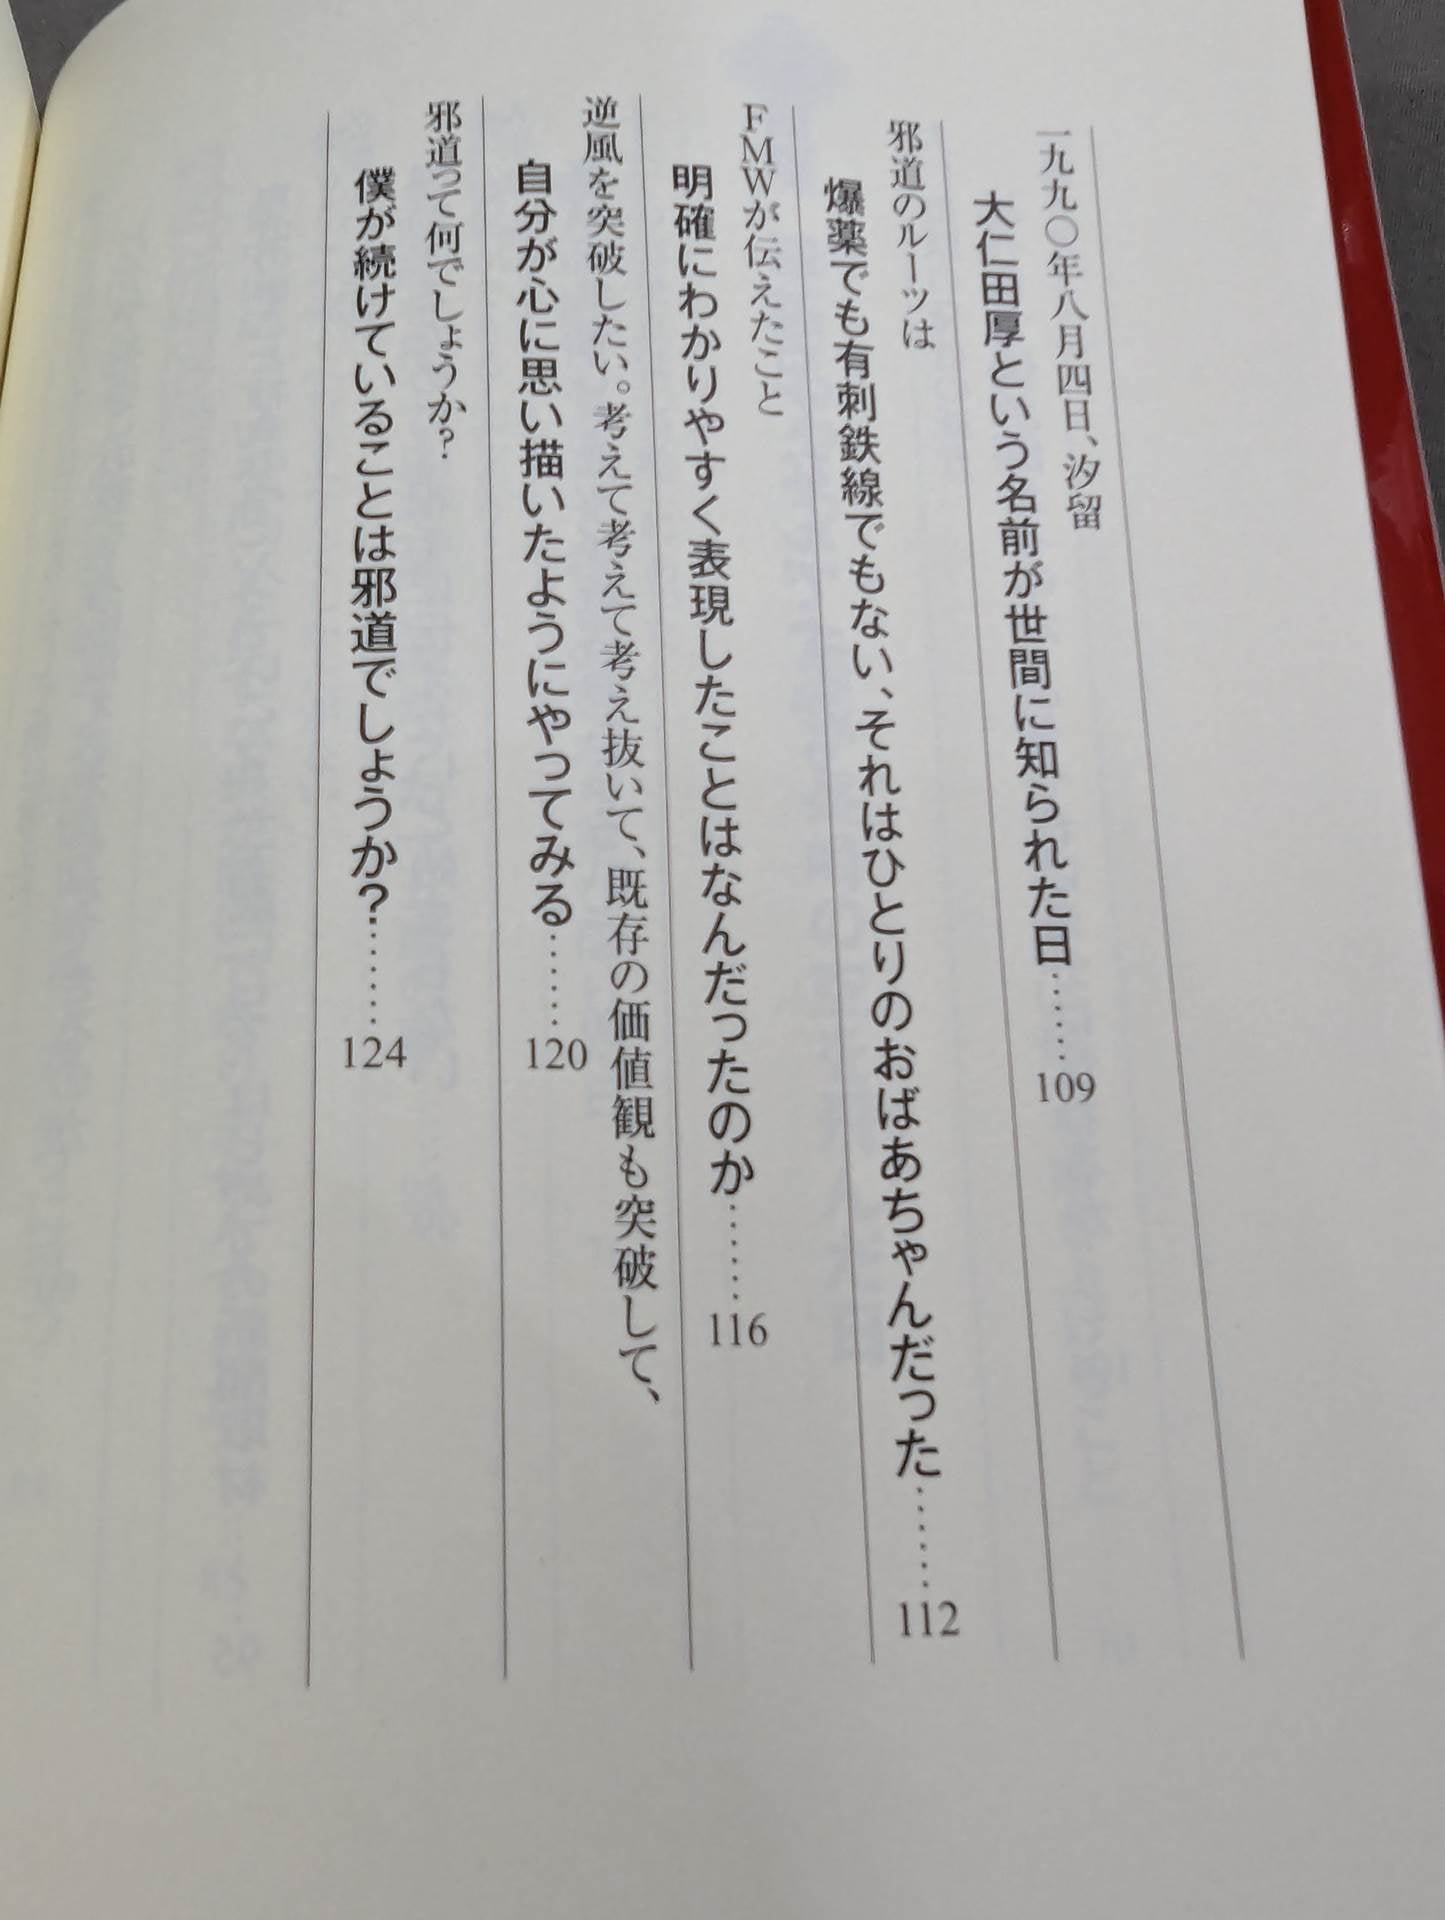 一九九〇年八月四日、汐留
大仁田厚という名前が世間に知られた日……109
邪道のルーツは
爆薬でも有刺鉄線でもない、それはひとりのおばあちゃんだった……112
FMWが伝えたこと
明確にわかりやすく表現したことはなんだったのか……116
逆風を突破したい。考えて考えて考え抜いて、既存の価値観も突破して、
自分が心に思い描いたようにやってみる……120
邪道って何でしょうか?
僕が続けていることは邪道でしょうか?……124